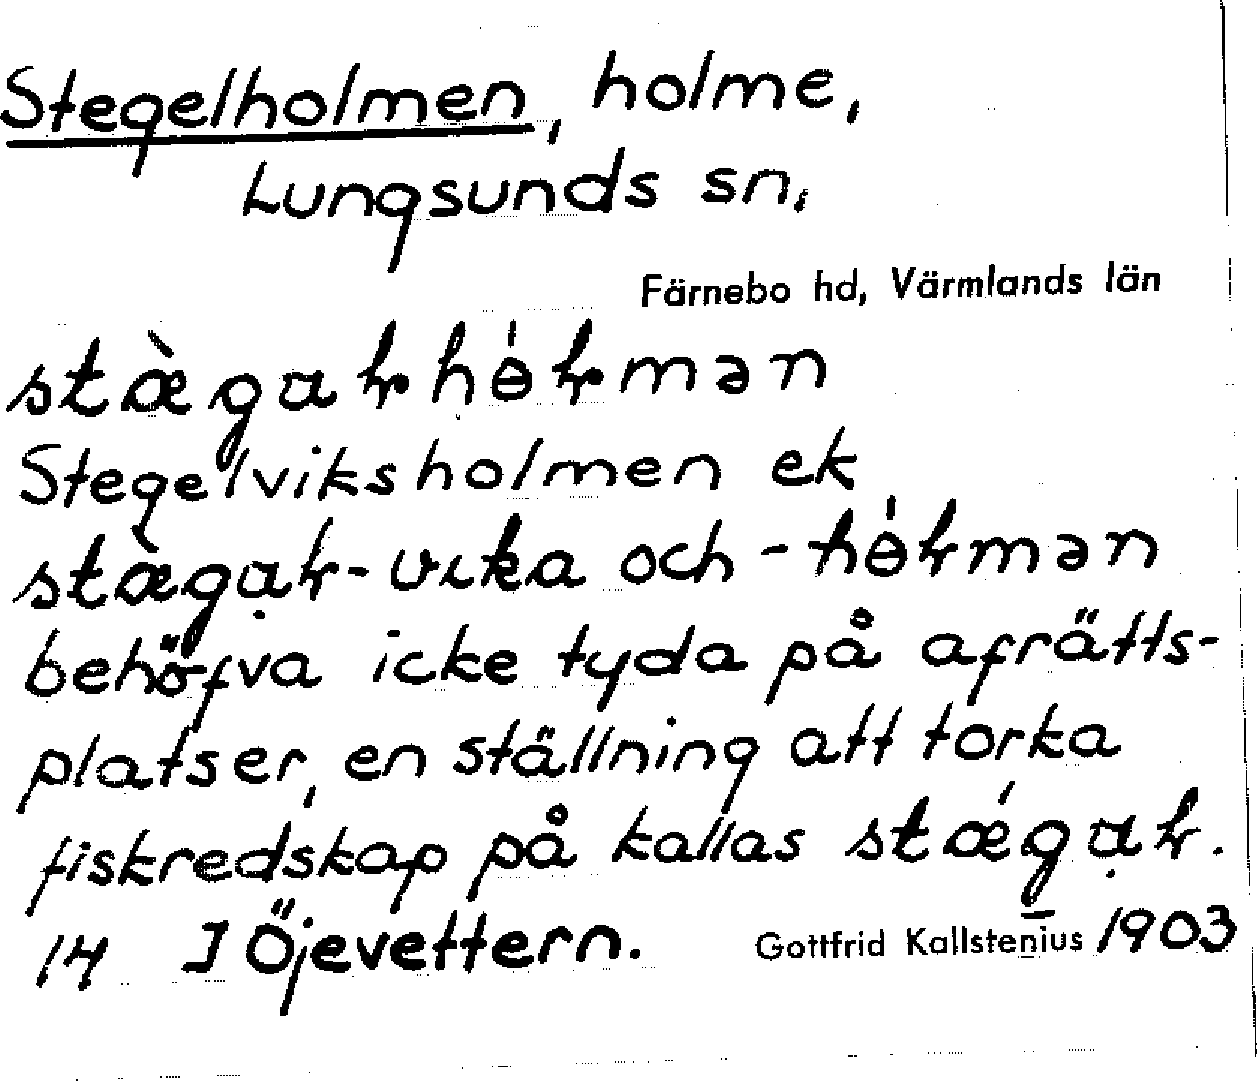 Stegelholmen, holme,
Lungsunds sn.
Färnebo hd, Värmlands län
stæ̀gaɽhɵ́ɽmən
Stegelviksholmen ek
stæ̀gạɽ-vika och -hɵ́ɽmən
behöfva icke tyda på afrätts-
platser, en ställning att torka
fiskredskap på kallas stǽgạɽ.
14 I Öjevettern. Gottfrid Kallstenius 1903